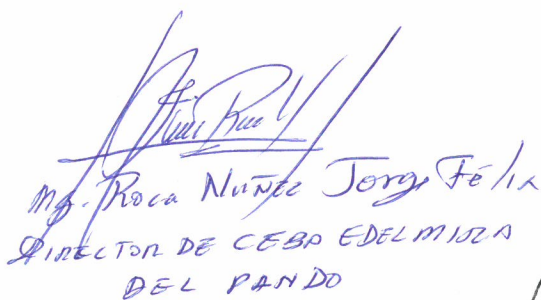 Mg. Roca Nuñez Jorge Félix
DIRECTOR DE CEBA EDELMIRA
DEL PANDO